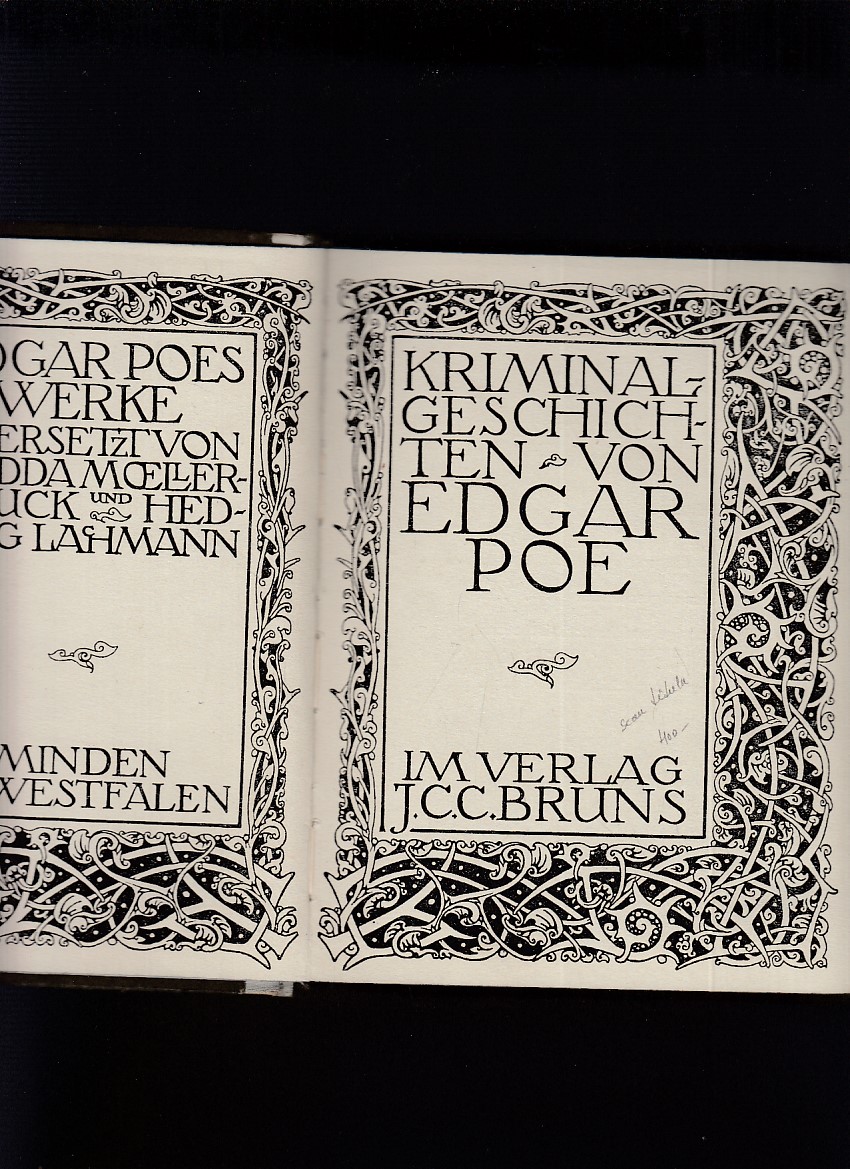 DGAR POES
WERKE
ERSETZT VON
DDA MŒLLER-
UCK UND HED-
G LACHMANN
MINDEN
WESTFALEN
KRIMINAL-
GESCHICH-
TEN VON
EDGAR
POE
IM VERLAG
J.C.C. BRUNS